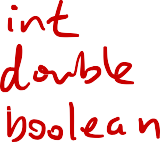 int
double
boolean